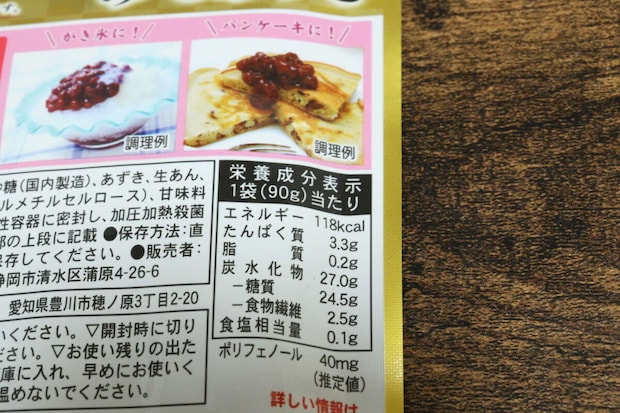 かき氷に!
パンケーキに!
調理例
調理例
糖(国内製造)、あずき、生あん、
ルメチルセルロース)、甘味料
性容器に密封し、加圧加熱殺菌
部の上段に記載 ●保存方法:直
保存してください。●販売者:
静岡市清水区蒲原4-26-6
愛知県豊川市穂ノ原3丁目2-20
いください。▽開封時に切り
ださい。▽お使い残りの出た
庫に入れ、早めにお使いく
温めないでください。
栄養成分表示
1袋(90g)当たり
エネルギー 118kcal
たんぱく質 3.3g
脂質 0.2g
炭水化物 27.0g
−糖質 24.5g
−食物繊維 2.5g
食塩相当量 0.1g
ポリフェノール 40mg
(推定値)
詳しい情報は